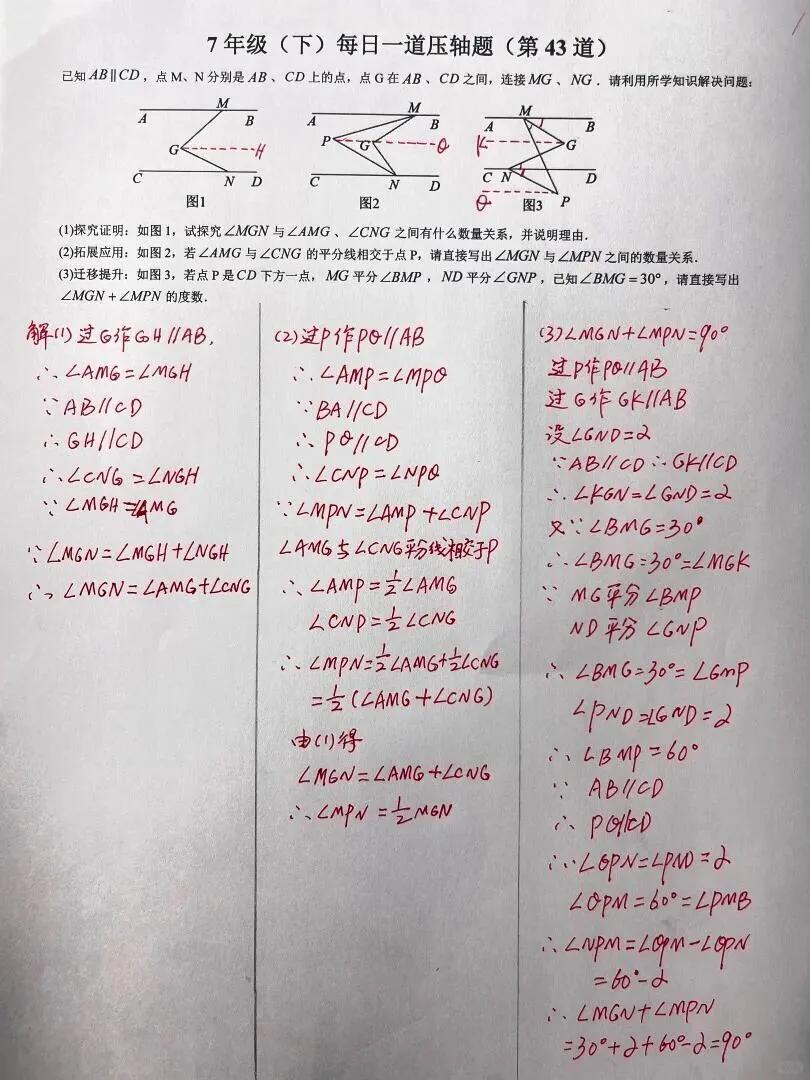 7 年级（下）每日一道压轴题（第 43 道）
已知 AB∥CD，点 M、N 分别是 AB、CD 上的点，点 G 在 AB、CD 之间，连接 MG、NG．请利用所学知识解决问题：
A M B
G H
C N D
图1
A M B
P G Q
C N D
图2
A M B
K G
C N D
Q P
图3
(1)探究证明：如图 1，试探究∠MGN 与∠AMG、∠CNG 之间有什么数量关系，并说明理由．
(2)拓展应用：如图 2，若∠AMG 与∠CNG 的平分线相交于点 P，请直接写出∠MGN 与∠MPN 之间的数量关系．
(3)迁移提升：如图 3，若点 P 是 CD 下方一点，MG 平分∠BMP，ND 平分∠GNP，已知∠BMG = 30°，请直接写出
∠MGN + ∠MPN 的度数．
解(1)过G作GH∥AB，
∴∠AMG=∠MGH
∵AB∥CD
∴GH∥CD
∴∠CNG=∠NGH
∵∠MGH=∠AMG
∵∠MGN=∠MGH+∠NGH
∴∠MGN=∠AMG+∠CNG
(2)过P作PQ∥AB
∴∠AMP=∠MPQ
∵BA∥CD
∴PQ∥CD
∴∠CNP=∠NPQ
∵∠MPN=∠AMP+∠CNP
∠AMG与∠CNG平分线相交于P
∴∠AMP=½∠AMG
∠CNP=½∠CNG
∴∠MPN=½∠AMG+½∠CNG
=½(∠AMG+∠CNG)
由(1)得
∠MGN=∠AMG+∠CNG
∴∠MPN=½MGN
(3)∠MGN+∠MPN=90°
过P作PQ∥AB
过G作GK∥AB
设∠GND=2
∵AB∥CD∴GK∥CD
∴∠KGN=∠GND=2
又∵∠BMG=30°
∴∠BMG=30°=∠MGK
∵MG平分∠BMP
ND平分∠GNP
∴∠BMG=30°=∠GMP
∠PND=∠GND=2
∴∠BMP=60°
∵AB∥CD
∴PQ∥CD
∴∠QPN=∠PND=2
∠QPM=60°=∠PMB
∴∠NPM=∠QPM-∠QPN
=60°-2
∴∠MGN+∠MPN
=30°+2+60°-2=90°